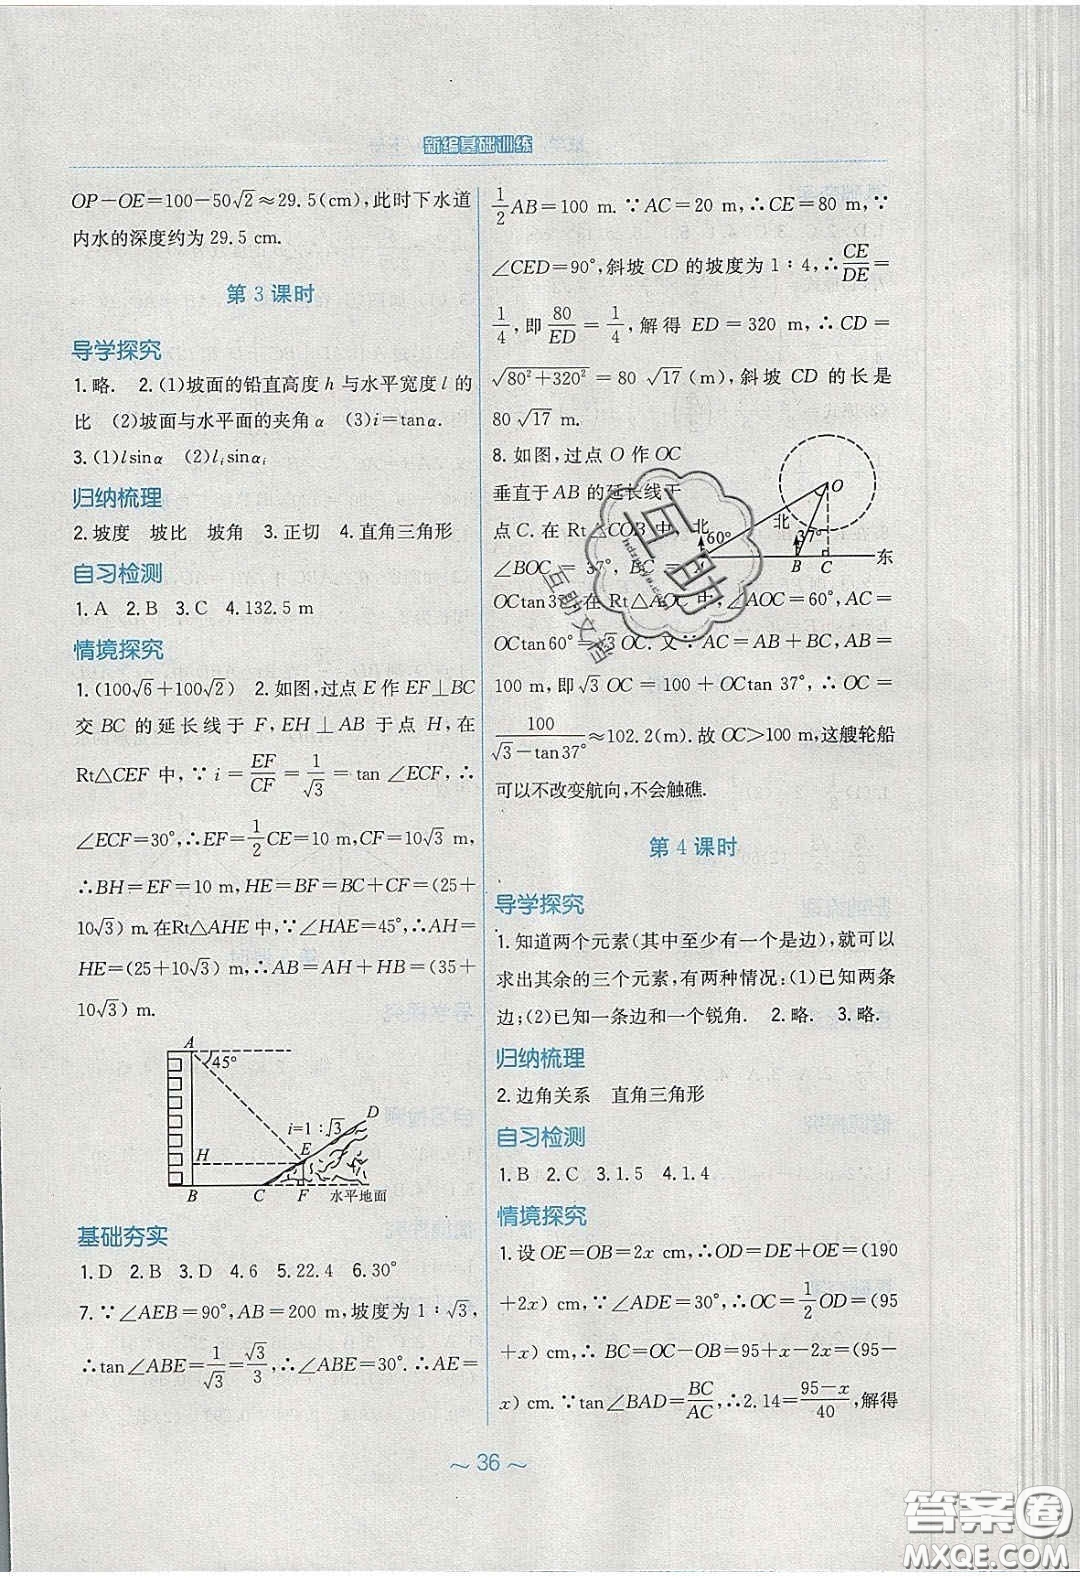 新编基础训练
OP－OE＝100－50√2≈29.5(cm)，此时下水道
内水的深度约为 29.5 cm.
第 3 课时
导学探究
1. 略. 2. (1)坡面的铅直高度 h 与水平宽度 l 的
比 (2)坡面与水平面的夹角 α (3)i＝tanα.
3. (1)lsinα (2)lᵢsinαᵢ
归纳梳理
2. 坡度 坡比 坡角 3. 正切 4. 直角三角形
自习检测
1. A 2. B 3. C 4. 132.5 m
情境探究
1. (100√6＋100√2) 2. 如图，过点 E 作 EF⊥BC
交 BC 的延长线于 F，EH⊥AB 于点 H，在
Rt△CEF 中，∵i＝EF/CF＝1/√3＝tan∠ECF，∴
∠ECF＝30°，∴EF＝1/2CE＝10 m，CF＝10√3 m，
∴BH＝EF＝10 m，HE＝BF＝BC＋CF＝(25＋
10√3) m. 在Rt△AHE 中，∵∠HAE＝45°，∴AH＝
HE＝(25＋10√3) m，∴AB＝AH＋HB＝(35＋
10√3) m.
A
45°
D
i＝1∶√3
H
E
B
C
F
水平地面
基础夯实
1. D 2. B 3. D 4. 6 5. 22.4 6. 30°
7. ∵∠AEB＝90°，AB＝200 m，坡度为 1∶√3，
∴tan∠ABE＝1/√3＝√3/3，∴∠ABE＝30°. ∴AE＝
1/2AB＝100 m. ∵AC＝20 m，∴CE＝80 m，∵
∠CED＝90°，斜坡 CD 的坡度为 1∶4，∴CE/DE＝
1/4，即80/ED＝1/4，解得 ED＝320 m，∴CD＝
√80²＋320²＝80√17(m)，斜坡 CD 的长是
80√17 m.
8. 如图，过点 O 作 OC
垂直于 AB 的延长线于
点 C. 在 Rt△COB 中，
∠BOC＝37°，BC＝
OCtan37°. 在 Rt△AOC 中，∠AOC＝60°，AC＝
OCtan60°＝√3OC. 又∵AC＝AB＋BC，AB＝
100 m，即√3OC＝100＋OCtan 37°，∴OC＝
100/√3－tan37°≈102.2(m). 故 OC＞100 m，这艘轮船
可以不改变航向，不会触礁.
O
北
60°
北
37°
B
C
东
第 4 课时
导学探究
1. 知道两个元素(其中至少有一个是边)，就可以
求出其余的三个元素，有两种情况：(1)已知两条
边；(2)已知一条边和一个锐角. 2. 略. 3. 略.
归纳梳理
2. 边角关系 直角三角形
自习检测
1. B 2. C 3. 1.5 4. 1.4
情境探究
1. 设 OE＝OB＝2x cm，∴OD＝DE＋OE＝(190
＋2x) cm，∵∠ADE＝30°，∴OC＝1/2OD＝(95
＋x) cm，∴ BC＝OC－OB＝95＋x－2x＝(95－
x) cm. ∵tan∠BAD＝BC/AC，∴2.14＝95－x/40，解得
～ 36 ～
互助
hdzhxyx.com
互助文档
答案圈
MXQE.COM